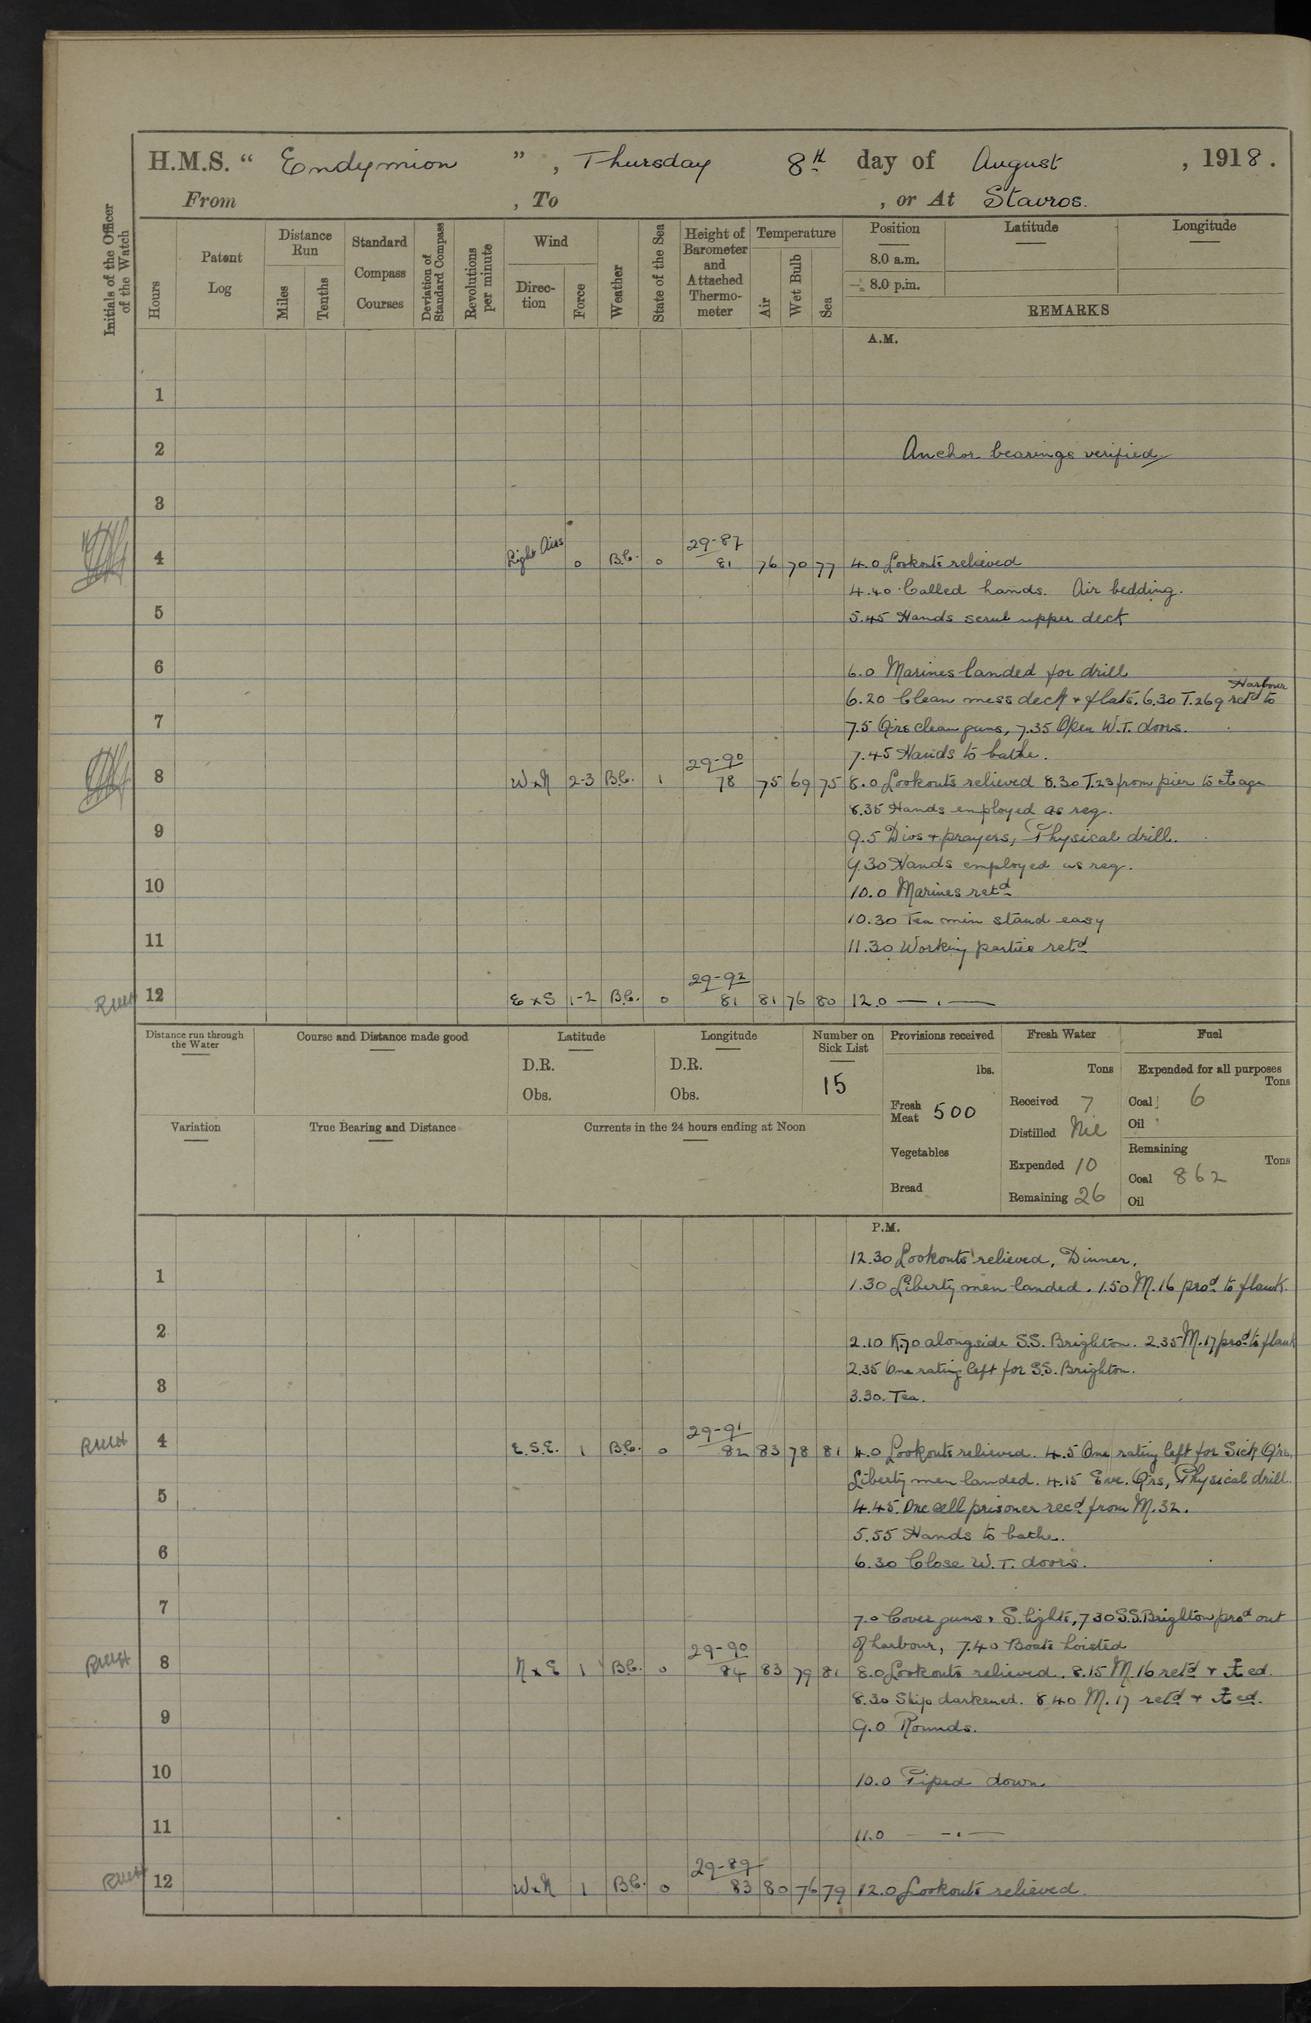 H.M.S. " Endymion " , Thursday 8th day of August , 1918 .
From , To , or At Stavros.
Initials of the Officer of the Watch
Hours
Patent Log
Distance Run
Miles
Tenths
Standard Compass Courses
Deviation of Standard Compass
Revolutions per minute
Wind
Direction
Force
Weather
State of the Sea
Height of Barometer and Attached Thermometer
Temperature
Air
Wet Bulb
Sea
Position
8.0 a.m.
8.0 p.m.
Latitude
Longitude
REMARKS
A.M.
1
2 Anchor bearings verified
3
29-87
4 Light Airs 0 B.C. 0 81 76 70 77 4.0 Lookouts relieved
4.40 Called hands. Air bedding.
5 5.45 Hands scrub upper deck
6 6.0 Marines landed for drill
Harbour
6.20 Clean mess deck & flats. 6.30 T.269 retd to
7 7.5 Qrs clean guns, 7.35 Open W.T. doors.
7.45 Hands to bathe.
29-90
8 W x N 2-3 B.C. 1 78 75 69 75 8.0 Lookouts relieved 8.30 T.23 from pier to ⚓age
8.35 Hands employed as req.
9 9.5 Divs & prayers, Physical drill.
9.30 Hands employed as req.
10 10.0 Marines retd
10.30 Ten min stand easy
11 11.30 Working parties retd
29-92
12 E x S 1-2 B.C. 0 81 81 76 80 12.0 — . —
Distance run through the Water
Course and Distance made good
Latitude
D.R.
Obs.
Longitude
D.R.
Obs.
Number on Sick List
15
Provisions received
lbs.
Fresh Meat 500
Vegetables
Bread
Fresh Water
Tons
Received 7
Distilled Nil
Expended 10
Remaining 26
Fuel
Expended for all purposes
Tons
Coal 6
Oil
Remaining
Tons
Coal 862
Oil
Variation
True Bearing and Distance
Currents in the 24 hours ending at Noon
P.M.
12.30 Lookouts relieved, Dinner.
1 1.30 Liberty men landed. 1.50 M.16 prod to flank.
2 2.10 K.70 alongside S.S. Brighton. 2.35 M.17 prod to flank
2.35 One rating left for S.S. Brighton.
3 3.30. Tea.
29-91
4 E.S.E. 1 B.C. 0 82 83 78 81 4.0 Lookouts relieved. 4.5 One rating left for Sick Qrs,
Liberty men landed. 4.15 Eve. Qrs, Physical drill.
5 4.45. One cell prisoner recd from M.32.
5.55 Hands to bathe.
6 6.30 Close W.T. doors.
7 7.0 Cover guns, S. lights, 7 30 S.S. Brighton prod out
of harbour, 7.40 Boats hoisted
29-90
8 N x E 1 B.C. 0 84 83 79 81 8.0 Lookouts relieved. 8.15 M.16 retd & ⚓ed.
8.30 Ship darkened. 8 40 M.17 retd & ⚓ed.
9 9.0 Rounds.
10 10.0 Piped down
11 11.0 — . —
29-89
12 W x N 1 B.C. 0 83 80 76 79 12.0 Lookouts relieved.